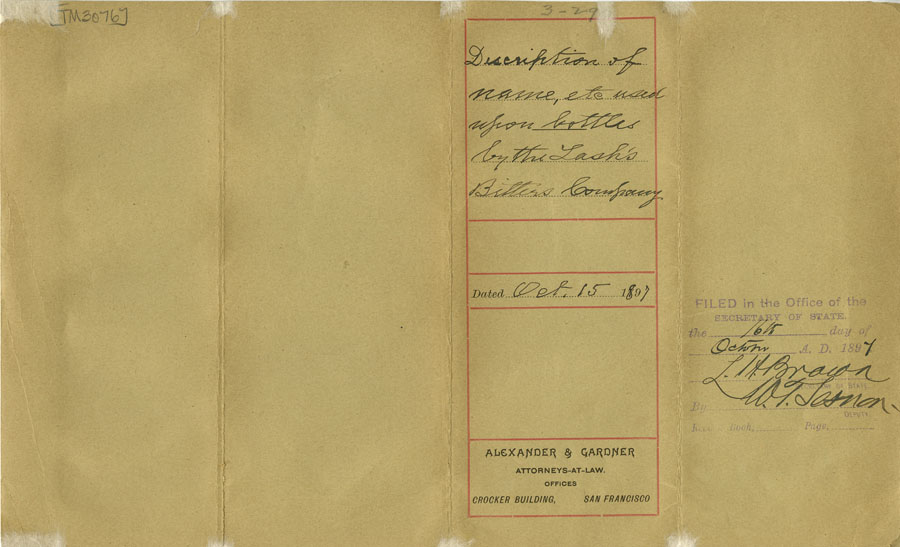 [TM3076]
3-27
Description of
name, etc used
upon bottles
by the Lash's
Bitters Company
Dated Oct. 15 1897
ALEXANDER & GARDNER
ATTORNEYS-AT-LAW.
OFFICES
CROCKER BUILDING, SAN FRANCISCO
FILED in the Office of the
SECRETARY OF STATE.
the 16th day of
October A. D. 1897
L. H. Brown
By W. T.
DEPUTY
Book, Page,